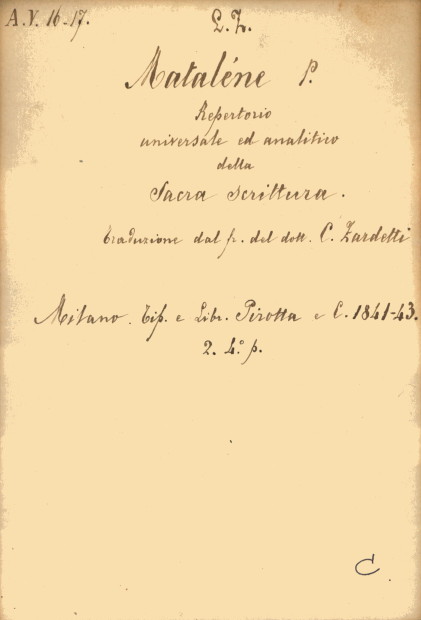 A.V. 16-17.
L.Z.
Mataléne P.
Repertorio
universale ed analitico
della
Sacra Scrittura.
Traduzione dal fr. del dott. C. Zardetti
Milano. Tip. e Libr. Pirotta e C. 1841-43.
2. 4° p.
C